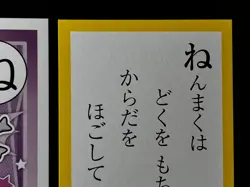 ねんまくは
どくをもち
からだを
ほごして
ね